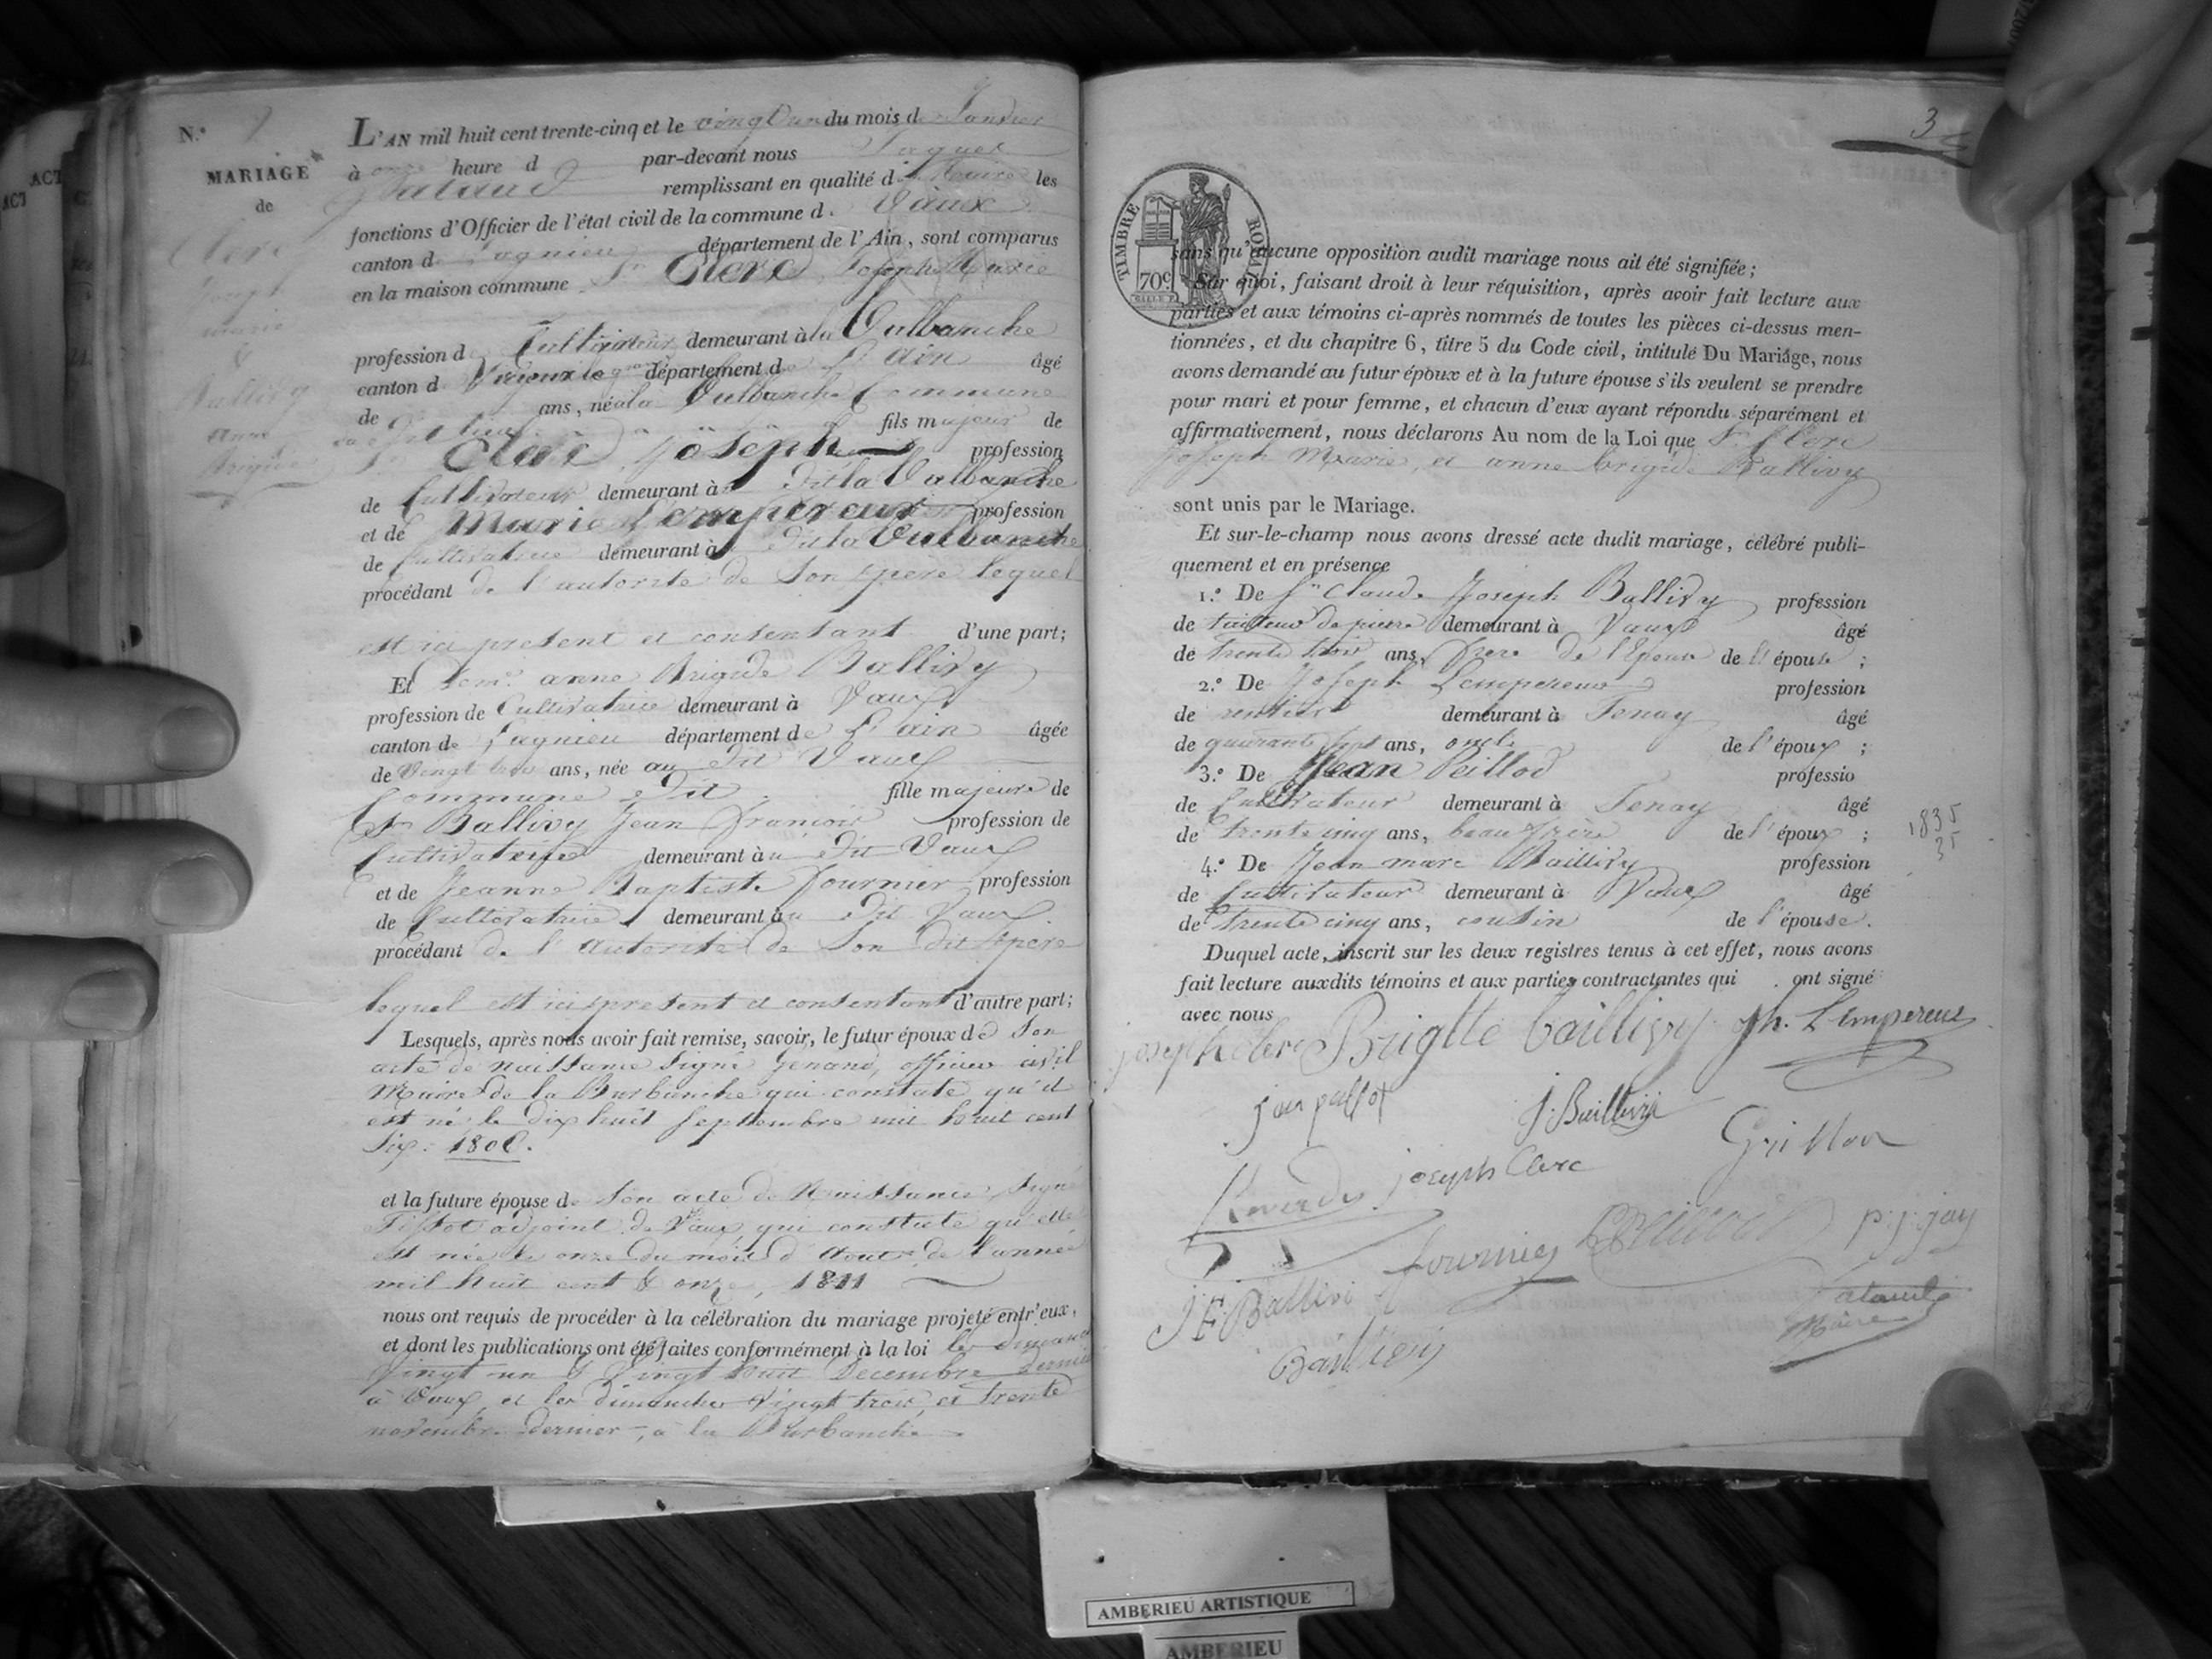 N.°
MARIAGE
de
Clerc
Joseph
marie
&
Ballivy
anne
Brigide
L'AN mil huit cent trente-cinq et le du mois de Janvier
à onze heure d par-devant nous Jaques
Pataud remplissant en qualité de Maire les
fonctions d'Officier de l'état civil de la commune d. Vaux
canton de Lagnieu département de l'Ain, sont comparus
en la maison commune Sr Clerc Joseph Marie
profession de Cultivateur demeurant à la Bulbanche
canton d Virieux le grand département de L'ain âgé
de ans, né à la Bulbanche Commune
du dit lieu fils majeur de
Sr Clerc Joseph profession
de Cultivateur demeurant à dit la Balbanche
et de Marie Lempereur profession
de Cultivatrice demeurant à dit la Bulbanche
procédant de l'autorité de Son père lequel
est ici présent et consentant d'une part;
Et Dem.e anne Brigide Ballivy
profession de Cultivatrice demeurant à Vaux
canton de Lagnieu département de L'ain âgée
de Vingt trois ans, née au dit Vaux
Commune dit fille majeure de
Sr Ballivy Jean François profession de
Cultivatrice demeurant à u dit Vaux
et de Jeanne Baptiste fournier profession
de Cultivatrice demeurant à u dit Vaux
procédant de l'autorité de Son dit père
lequel est ici présent et consentant d'autre part;
Lesquels, après nous avoir fait remise, savoir, le futur époux de Son
acte de naissance Signé Genand, officier civil
Maire de la Burbanche qui constate qu'il
est né le dix huit Septembre mil huit cent
Six: 1806.
et la future épouse de Son acte de Naissance, signé
Tissot adjoint de Vaux, qui constate qu'elle
est née le onze du mois d'Aout de l'année
mil huit cent & onze, 1811
nous ont requis de procéder à la célébration du mariage projeté entr'eux,
et dont les publications ont été faites conformément à la loi les dimanches
Vingt un & Vingt huit Decembre dernier
à Vaux, et les dimanches Vingt trois, et trente
novembre dernier, à la Burbanche
3
TIMBRE ROYAL
70c
sans qu'aucune opposition audit mariage nous ait été signifiée;
Sur quoi, faisant droit à leur réquisition, après avoir fait lecture aux
parties et aux témoins ci-après nommés de toutes les pièces ci-dessus men-
tionnées, et du chapitre 6, titre 5 du Code civil, intitulé Du Mariage, nous
avons demandé au futur époux et à la future épouse s'ils veulent se prendre
pour mari et pour femme, et chacun d'eux ayant répondu séparément et
affirmativement, nous déclarons Au nom de la Loi que Sr Clerc
Joseph Marie, et anne brigide Ballivy
sont unis par le Mariage.
Et sur-le-champ nous avons dressé acte dudit mariage, célébré publi-
quement et en présence
1.° De Sr Claude Joseph Ballivy profession
de tailleur de pierre demeurant à Vaux âgé
de trente trois ans, frere de l'Epouse de l'épouse;
2.° De Joseph Lempereur profession
de rentier demeurant à Tenay âgé
de quarante sept ans, oncle de l'époux;
3.° De Jean Peillod professio
de Cultivateur demeurant à Tenay âgé
de trente cinq ans, beau frère de l'époux;
4.° De Jean marc Baillivy profession
de Cultivateur demeurant à Vaux âgé
de trente cinq ans, cousin de l'épouse.
1835
35
Duquel acte, inscrit sur les deux registres tenus à cet effet, nous avons
fait lecture auxdits témoins et aux parties contractantes qui ont signé
avec nous
joseph clerc Brigitte baillivy Jph. Lempereur
J. Baillivy
joseph Clerc
fournier p: j: jay
J F: Ballivi
Maire
AMBERIEU ARTISTIQUE
AMBERIEU